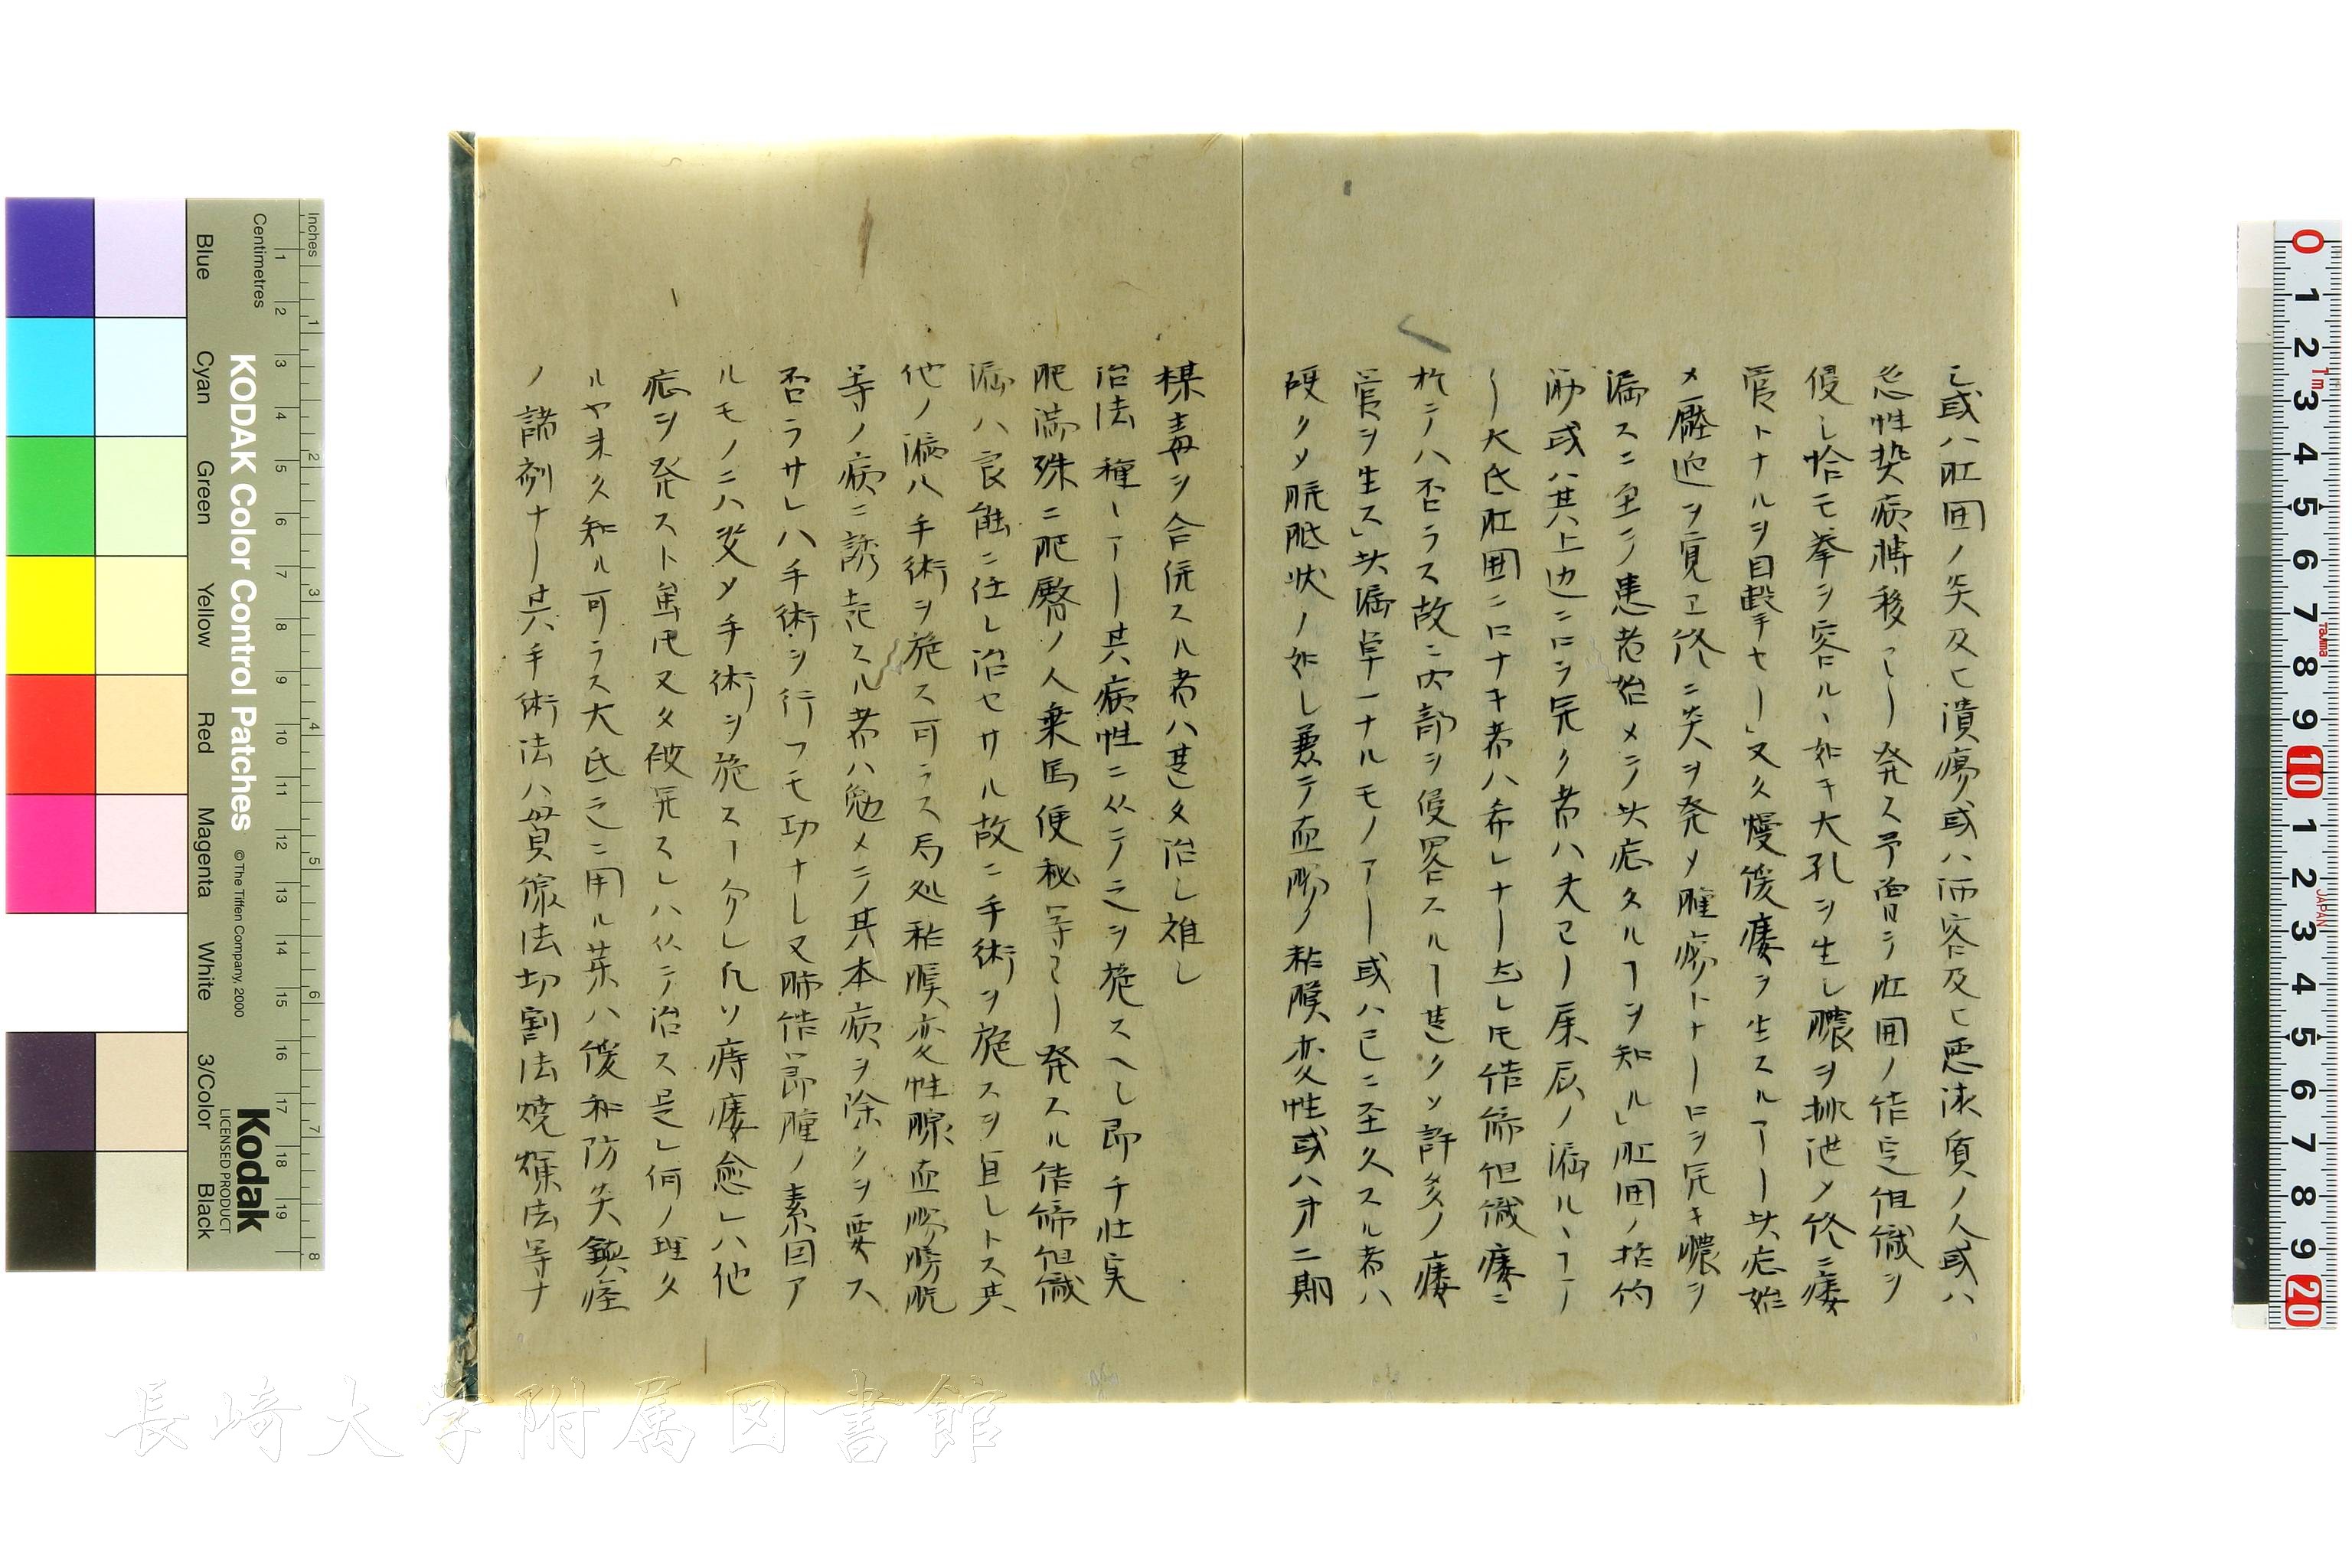 シ或ハ肛囲ノ炎及ヒ潰瘍或ハ沛容及ヒ悪液質ノ人或ハ
悪性熱病転移ヿ発ス予曽テ肛囲ノ結定組織ヲ
侵シ恰モ拳ヲ容ルヽ如キ大孔ヲ生シ膿ヲ排泄メ終ニ瘻
管トナルヲ目撃セリ」又久慢後瘻ヲ生スルアリ此症始
メ壓迫ヲ覚ヱ終ニ炎ヲ発メ腫瘍トナリ口ヲ開キ膿ヲ
漏スニ至テ患者始メテ此症タルヿヲ知ル」肛囲ノ括約
筋或ハ其上辺ニ口ヲ開ク者ハ大
大氐肛囲ニ口ナキ者ハ希レナリ然レ𪜈結締組織瘻ニ
於テハ否ラス故ニ内部ヲ侵害スルヿ甚クメ許多ノ瘻
管ヲ生ス」此漏単一ナルモノアリ或ハ已ニ至久スル者ハ
硬クメ胼胝状ノ如シ兼テ直腸ノ粘膜変性或ハ才二期
楳毒ヲ合併スル者ハ甚タ治シ難シ
治法種々アリ其病性ニ从テ之ヲ施スヘし即チ壮実
肥満殊ニ肥臀ノ人乗馬便秘等ヨリ発スル結締組織
漏ハ良能ニ任シ治セサル故ニ手術ヲ施スヲ宜シトス其
他ノ漏ハ手術ヲ施ス可ラス局処粘膜変性腺直腸膀胱
等ノ病ニ誘起スル者ハ勉メテ其本病ヲ除クヲ要ス
否ラサレハ手術ヲ行フモ功ナし又肺結節腫ノ素因ア
ルモノニハ必メ手術ヲ施スヿ勿レ凡ソ痔瘻愈レハ他
症ヲ発スト𧈧𪜈又タ破開スレハ从テ治ス是レ何ノ理タ
ルヤ未タ知ル可ラス大氐之ニ用ル薬ハ緩和防炎鎮痙
ノ諸剤ナリ其手術法ハ貫線法切割法焼爍法等ナ
Inches
Centimetres
KODAK Color Control Patches
© The Tiffen Company, 2000
Kodak
LICENSED PRODUCT
Blue
Cyan
Green
Yellow
Red
Magenta
White
3/Color
Black
長崎大学附属図書館